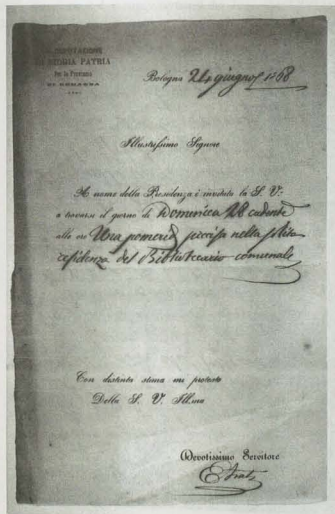 R. DEPUTAZIONE
DI STORIA PATRIA
Per le Provincie
DI ROMAGNA
Bologna 24 giugno 1868
Illustrissimo Signore
A nome della Presidenza è invitata la S. V.
a trovarsi il giorno di Domenica 28 cadente
alle ore Una pomerid. precisa nella solita
residenza del Bibliotecario comunale
Con distinta stima mi protesto
Della S. V. Ill.ma
Devotissimo Servitore